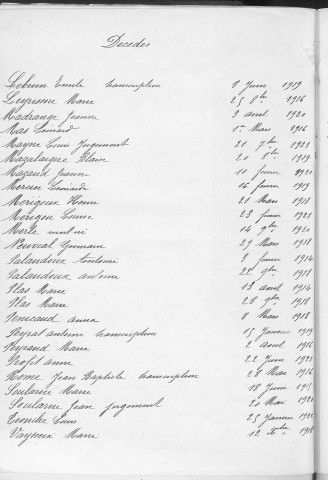 Décédés
Lebrun Emile transcription 8 Juin 1919
Leyresse Marie 25 8bre 1916
Madrange Jeanne 3 avril 1920
Mas Léonard 1er Mars 1916
Mayne Louis Jugement 21 7bre 1921
Mazalaigue Elaine 20 8bre 1919
Mazaud Jeanne 10 février 1920
Mercier Léonide 16 février 1919
Mérigoux Henri 21 Mars 1918
Mérigou Louise 23 Janvier 1921
Merle mort né 14 9bre 1920
Neuvial Germain 29 Mars 1918
Salandoux Antoine 9 Janvier 1914
Salandoux Antoine 24 9bre 1918
Plas Marie 13 avril 1914
Plas Marie 28 9bre 1918
Anna 8 Mars 1918
Peyrat Antoine transcription 15 Janvier 1919
Peyraud Marie 2 août 1916
Anna 22 Juin 1921
Rome Jean Baptiste transcription 28 Mai 1916
Soularue Marie 18 Juin
Soularue Jean jugement 20 Mai 1920
Tronche Louis 25 Janvier
Vayneix Marie 12 Xbre 1918